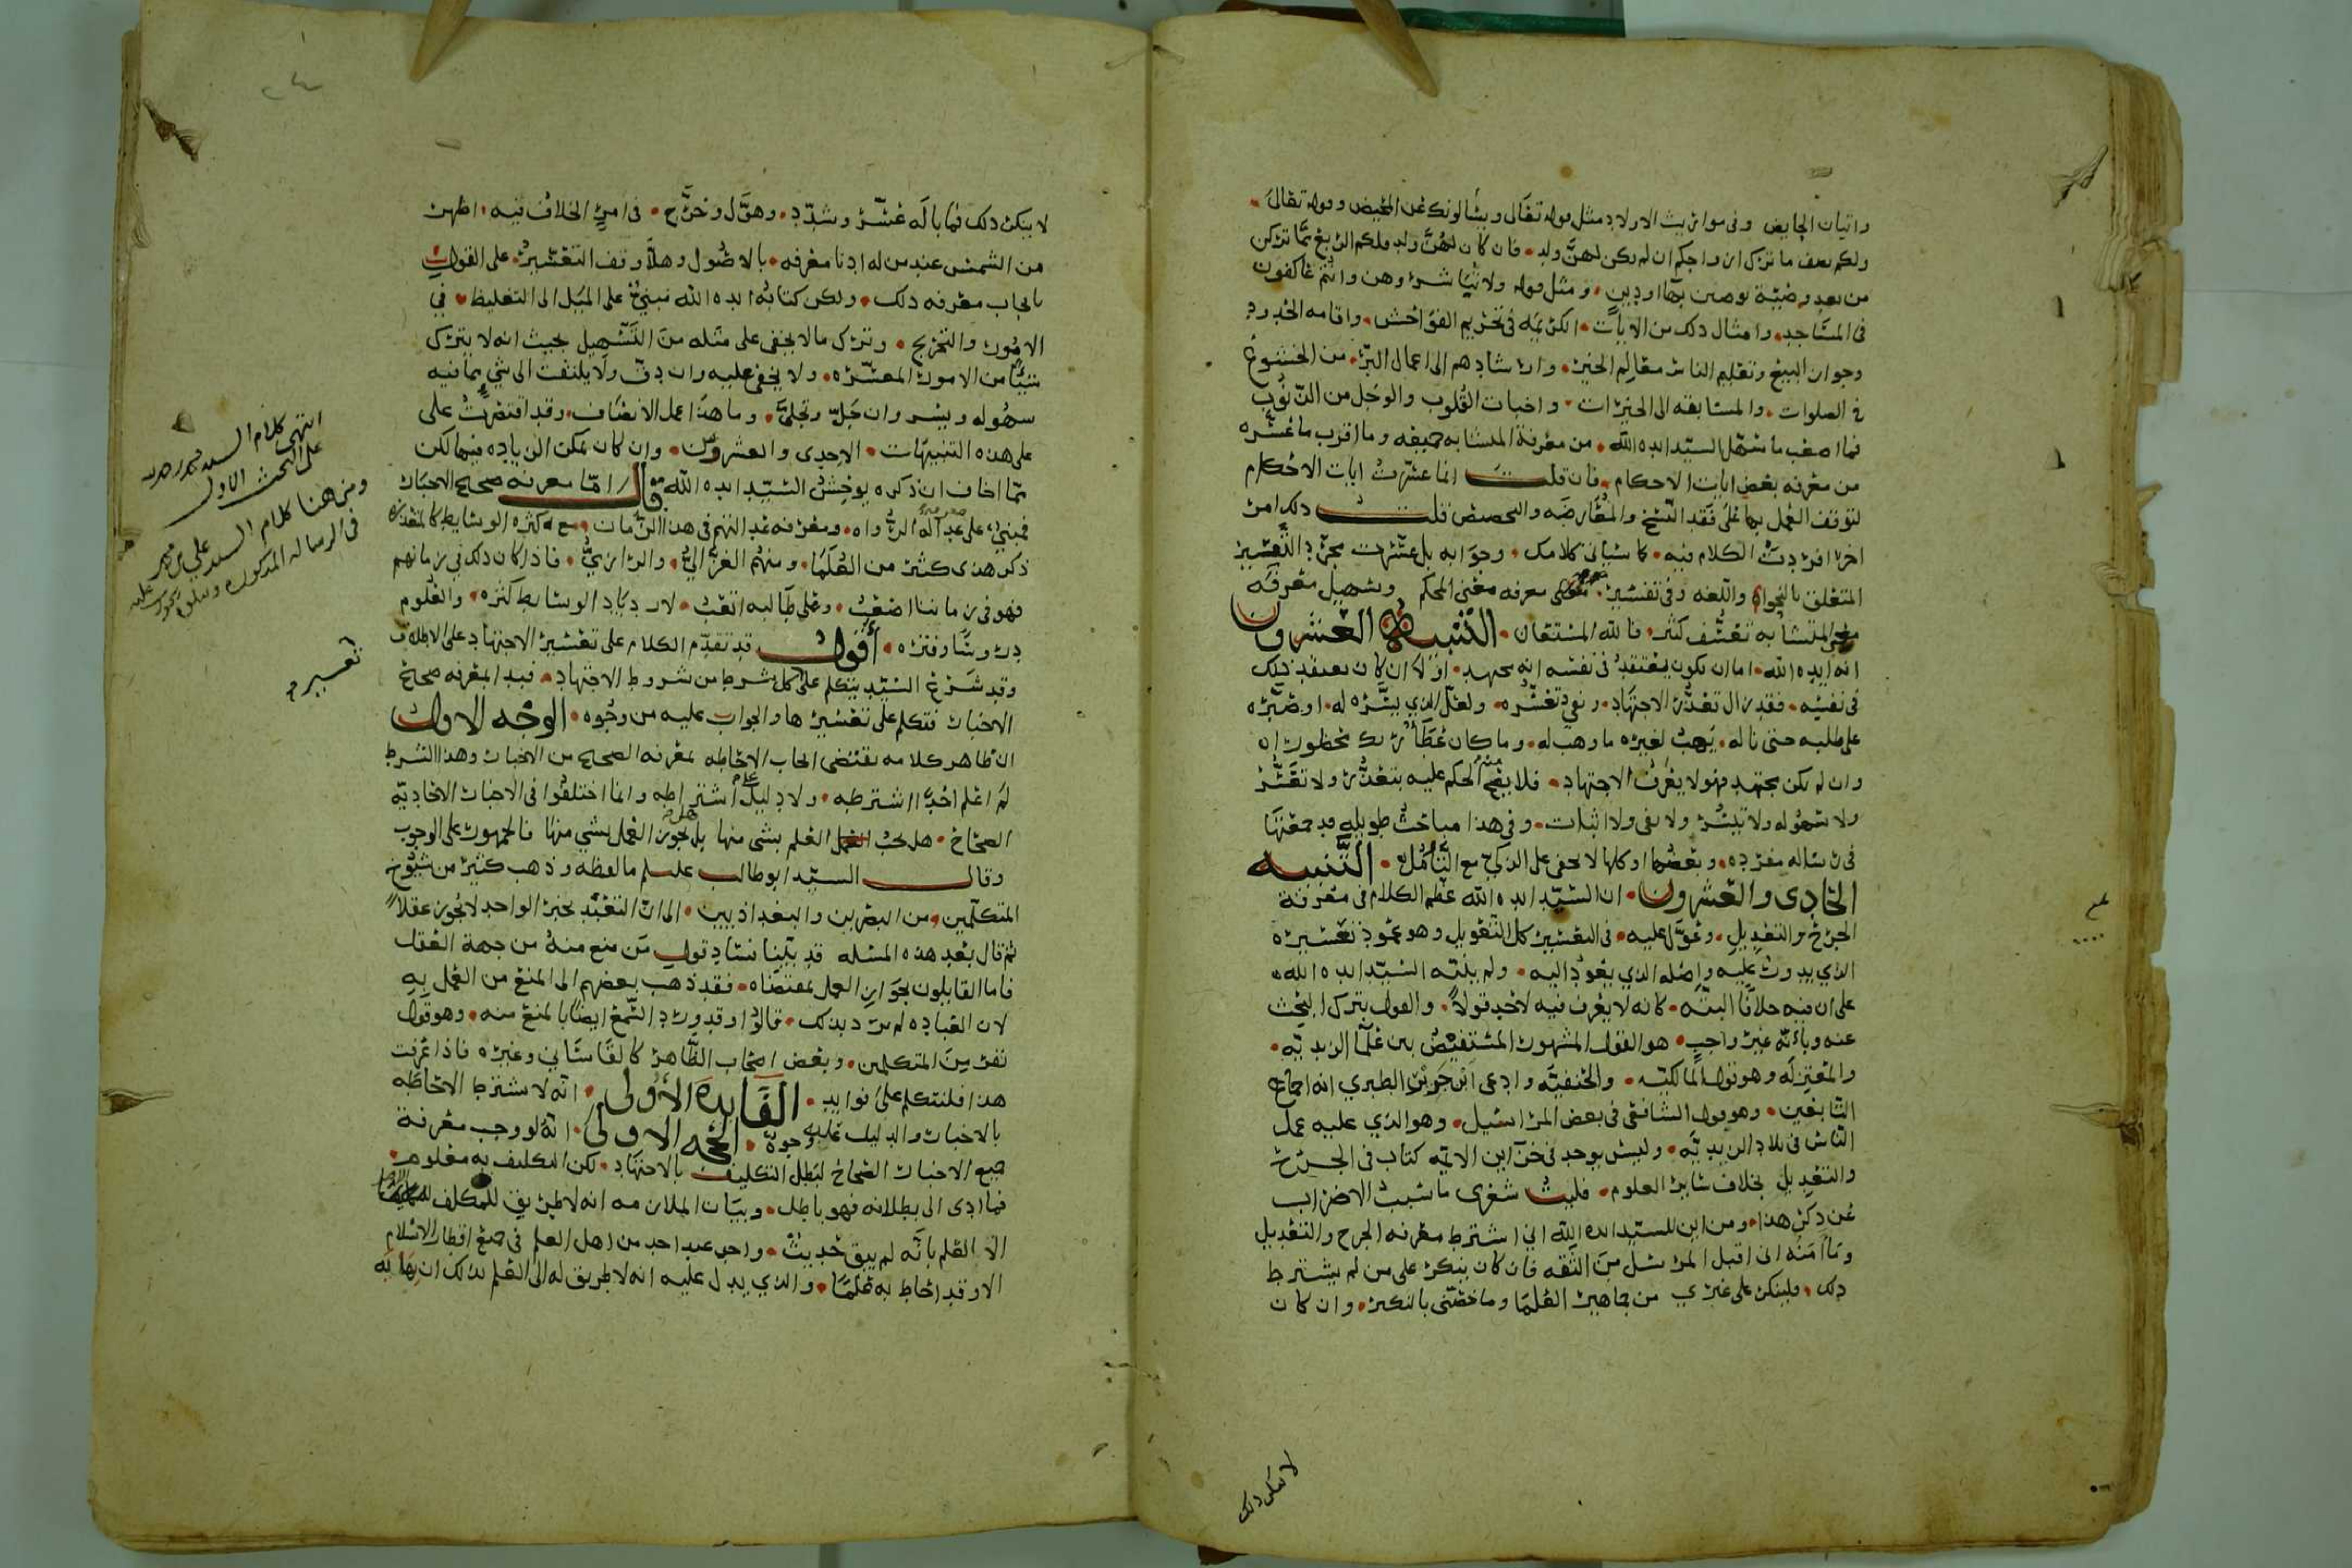 واتيان الحايض وفي مواريث الاولاد مثل قوله تعالى ويسالونك عن المحيض وقوله تعالى
ولكم نصف ما ترك ازواجكم ان لم يكن لهن ولد فان كان لهن ولد فلكم الربع مما تركن
من بعد وصية يوصين بها او دين ومثل قوله ولا تباشروهن وانتم عاكفون
في المساجد وامثال ذلك من الايات الكريمه في تحريم الفواحش واقامه الحدود
وجواز البيع وتعليم الناس معالم الخير وارشادهم الى اعمال البر من الخشوع
في الصلوات والمسابقه الى الخيرات واخبات القلوب والوجل من الذنوب
فما اصعب ما سهل السيد ايده الله من معرفة المتشابه جميعه وما اقرب ما عسره
من معرفه بعض ايات الاحكام فان قلت انما عسرت ايات الاحكام
لتوقف العمل بها على فقد النسخ والمعارضه والتخصيص قلت ذلك امر
اخر افردت الكلام فيه كما سياتي كلامك وجوابه بل عسرت مجرد التفسير
المتعلق بالنحو واللغه وفي تفسير معرفه معنى المحكم وتسهيل معرفه
معنى المتشابه تعسف كثير فالله المستعان التنبيه العشرون
انه ايده الله اما ان يكون يعتقد في نفسه انه مجتهد او لا ان كان يعتقد ذلك
في نفسه فقد زال تعذر الاجتهاد ونفي تعسره ولعل الذي يسره له او صبره
على طلبه حتى ناله يهب لغيره ما وهب له وما كان عطاء ربك محظورا
وان لم يكن مجتهد فهو لا يعرف الاجتهاد فلا يصح منه الحكم عليه بتعذر ولا تعسر
ولا سهوله ولا تيسر ولا نفي ولا اثبات وفي هذا مباحث طويله قد جمعتها
في رساله مفرده وبعضها او كلها لا تخفى على الذكي مع التامل التنبيه
الحادي والعشرون ان السيد ايده الله عظم الكلام في معرفة
الجرح والتعديل وعول عليه في التعسير كل التعويل وهو عمود تعسيره
الذي يدور عليه واصله الذي يعود اليه ولم ينبه السيد ايده الله
على ان فيه خلافا البته كانه لا يعرف فيه لاحد قولا والقول بترك البحث
عنه وبانه غير واجب هو القول المشهور المستفيض بين علما الزيديه
والمعتزله وهو قول المالكيه والحنفيه وادعى ابن جرير الطبري انه اجماع
التابعين وهو قول الشافعي في بعض المراسيل وهو الذي عليه عمل
الناس في بلاد الزيديه وليس يوجد في خزاين الائمه كتاب في الجرح
والتعديل بخلاف ساير العلوم فليت شعري ما سبب الاضراب
عن ذكر هذا ومن اين للسيد ايده الله اني اشترط معرفه الجرح والتعديل
وما امنه اني اقبل المرسل من الثقه فان كان ينكر على من لم يشترط
ذلك فلينكر على غيري من جماهير العلما وما خصني بالنكير وان كان
لا ينكر ذلك
لا ينكر ذلك فما باله عسر وشدد وهول وحرج في امر الخلاف فيه اظهر
من الشمس عند من له ادنا معرفه بالاصول وهلا وقف التعسير على القول
بايجاب معرفه ذلك ولكن كتابه ايده الله مبني على الميل الى التغليظ في
الامور والتحريج وترك ما لا يخفى على مثله من التسهيل بحيث انه لا يترك
شيئا من الامور المعسره ولا يخفى عليه وان دق ولا يلتفت الى شي مما فيه
سهوله ويسر وان جل وتجلى وما هذا عمل الانصاف وقد اقتصرت على
على هذه التنبيهات الاحدى والعشرون وان كان يمكن الزياده فيها لكن
مما اخاف ان ذكره يوحش السيد ايده الله قال اما معرفه صحيح الاخبار
فمبني على عداله الرواه ومعرفه عدالتهم في هذا الزمان مع كثره الوسايط كالمتعذره
ذكر هذا كثير من العلما ومنهم الغزالي والرازي فاذا كان ذلك في زمانهم
فهو في زماننا اصعب وعلى طالبه اتعب لازدياد الوسايط كثره والعلوم
دروسا وفتره أقول قد تقدم الكلام على تعسير الاجتهاد على الاطلاق
وقد شرع السيد يتكلم على كل شرط من شروط الاجتهاد فبدا بمعرفه صحاح
الاخبار فتكلم على تعسيرها والجواب عليه من وجوه الوجه الاول
ان ظاهر كلامه يقتضي ايجاب الاحاطه بمعرفه الصحيح من الاخبار وهذا الشرط
لم اعلم احدا اشترطه ولا دليل على اشتراطه وانما اختلفوا في الاخبار الاحاديه
الصحاح هل يجب العلم بشي منها بل هل يجوز العمل بشي منها فالجمهور على الوجوب
وقال السيد ابو طالب عليلم ما لفظه وذهب كثير من شيوخ
المتكلمين من البصريين والبغداذيين الى ان التعبد بخبر الواحد لا يجوز عقلا
ثم قال بعد هذه المسئله قد بينا فساد قول من منع منه من جهة العقل
فاما القايلون بجواز العمل بمقتضاه فقد ذهب بعضهم الى المنع من العمل به
لان العباده لم ترد بذلك قالوا وقد ورد السمع ايضا بالمنع منه وهو قول
نفر من المتكلمين وبعض اصحاب الظاهر كالقاساني وغيره فاذا عرفت
هذا فلنتكلم على فوايد الفايدة الاولى انه لا يشترط الاحاطه
بالاخبار والدليل عليه وجوه الحجه الاولى انه لو وجب معرفة
جميع الاخبار الصحاح لبطل التكليف بالاجتهاد لكن التكليف به معلوم
فما ادى الى بطلانه فهو باطل وبيان الملازمه انه لا طريق للمكلف
الا العلم بانه لم يبق حديث واحد عند احد من اهل العلم في جميع اقطار الاسلام
الا وقد احاط به علما والذي يدل عليه انه لا طريق له الى العلم بذلك ان نهايه
انتهى كلام السيد محمد رحمه
على البحث الاول
ومن هنا كلام السيد علي بن محمد
في الرساله المذكوره
تعسير